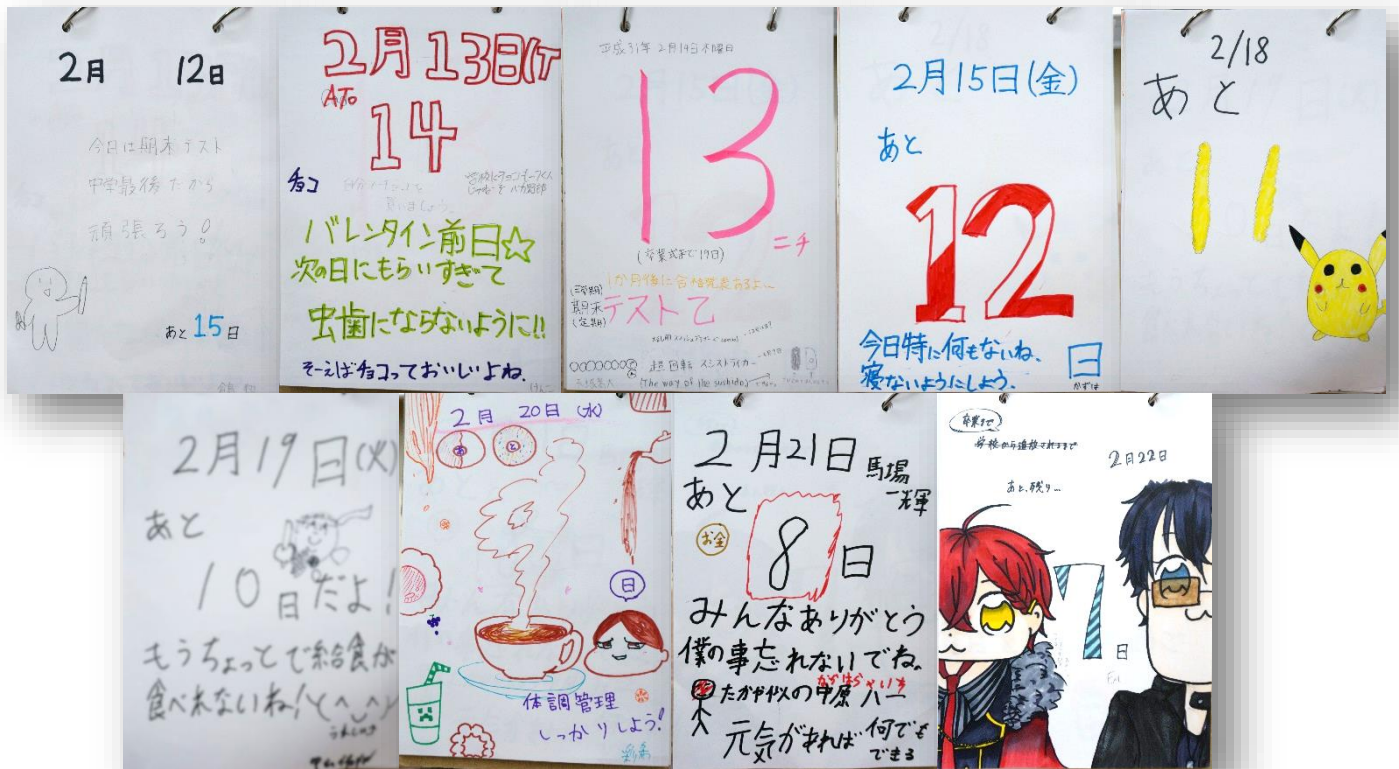 2月 12日
今日は期末テスト
中学最後だから
頑張ろう!
あと15日
2月13日(
ATO
14
チョコ
バレンタイン前日☆
次の日にもらいすぎて
虫歯にならないように!!
そーえばチョコっておいしいよね。
平成31年 2月14日木曜日
13
ニチ
(卒業式まで19日)
1か月後に合格発表あるよ〜
(三学期)
期末
(定期)
テスト乙
超回転
(The way of the sushido)
2/18
2月15日(金)
あと
12
今日特に何もないね、
寝ないようにしよう。
日
かずは
2/18
あと
11
2月19日(火)
あと
10日だよ!
もうちょっとで給食が
食べれないね!
2月 20日 (水)
あ と
日
体調管理
しっかりしよう!
2月21日 馬場
一輝
あと
お金
8日
みんなありがとう
僕の事忘れないでね。
たかや似の中原 八一
元気があれば何でも
できる
卒業まで
学校から追放されるまで
2月22日
あと、残り...
7日
Fri